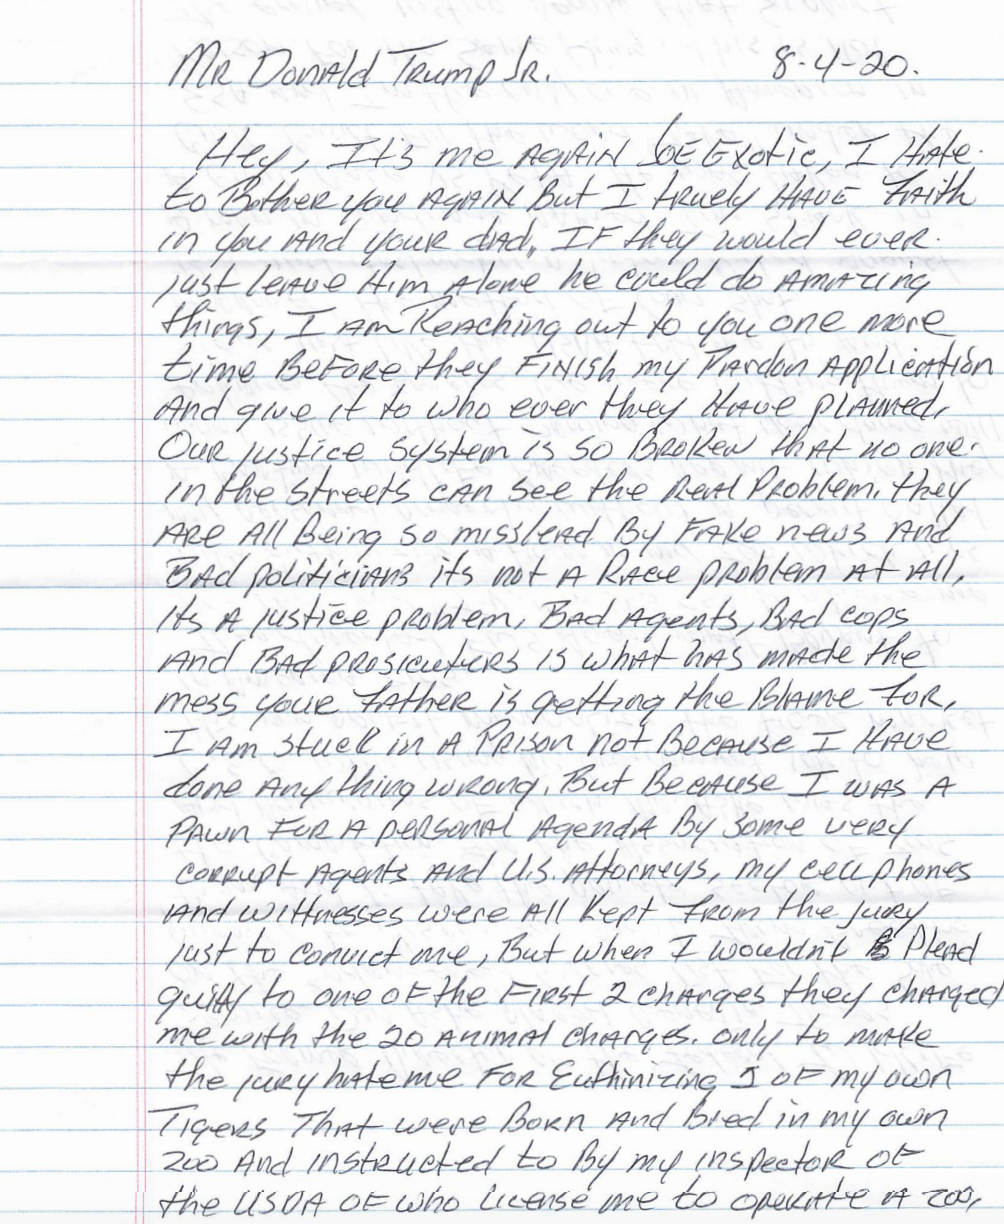 Mr Donald Trump Jr. 8-4-20.
Hey, It's me again Joe Exotic, I Hate
to Bother you again But I truely Have Faith
in you and your dad, If they would ever
just leave Him alone he could do amazing
things, I am Reaching out to you one more
time Before they Finish my Pardon Application
and give it to who ever they Have planned,
Our justice system is so Broken that no one
in the streets can see the Real Problem, they
are all Being so misslead By Fake news and
Bad politicians its not a Race problem at all,
its a justice problem, Bad Agents, Bad cops
and Bad prosicuters is what has made the
mess your Father is getting the Blame for,
I am stuck in a Prison not Because I Have
done any thing wrong, But Because I was a
Pawn For a personal Agenda By some very
corrupt Agents and U.S. Attorneys, my cell phones
and wittnesses were all kept From the jury
just to convict me, But when I wouldn't Plead
guilty to one of the First 2 charges they charged
me with the 20 animal charges. only to make
the jury hate me For Euthinizing 5 of my own
Tigers That were Born and Bred in my own
zoo and instructed to By my inspector of
the USDA of who license me to operate a zoo,